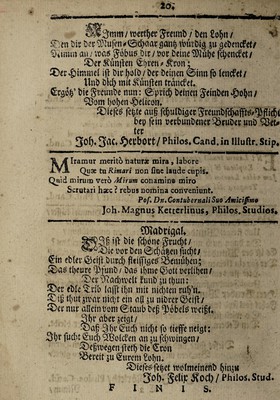 20.
NImm/ werther Freund/ den Lohn/
Den dir der Musen-Schaar gantz würdig zu gedencket/
Nimm an/ was Föbus dir/ vor deine Mühe schencket/
Der Künsten Ehren-Kron;
Der Himmel ist dir hold/ der deinen Sinn so lencket/
Und dich mit Künsten träncket.
Ergötz' die Freunde nun: Sprich deinen Feinden Hohn/
Vom hohen Helicon.
Dieses setzte auß schuldiger Freundschaffts-Pflicht
der sein verbundener Bruder und Vet-
ter
Joh. Jac. Herbort/ Philos. Cand. in Illustr. Stip.
MIramur meritò naturæ mira, labore
Quæ tu Rimari non sine laude cupis.
Quid mirum verò Mirum conamine miro
Scrutari hæc? rebus nomina conveniunt.
Pos. Dn. Contubernali Suo Amicissimo
Joh. Magnus Ketterlinus, Philos. Studios.
Madrigal.
DIß ist die schöne Frucht/
Die vor den Schatzen sucht/
Ein edler Geist durch fleissiges Bemühen;
Das theure Pfund/ das ihme Gott verlihen/
Der Nachwelt kund zu thun:
Der edle Trib lasst ihn mit nichten ruh'n.
Diß thut zwar nicht ein all zu nidrer Geist/
Der nur allein vom Staub deß Pöbels weißt.
Ihr aber zeigt/
Daß Ihr Euch nicht so tieffe neigt;
Ihr sucht Euch Wolcken an zu schwingen/
Deßwegen steht die Cron
Bereit zu Eurem Lohn.
Dieses setzet wolmeinend hinzu
Joh. Felix Koch/ Philos. Stud.
FINIS.